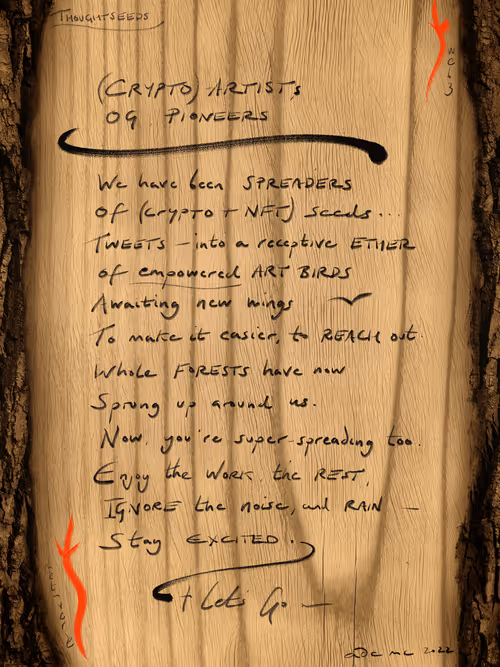 THOUGHTSEEDS
(CRYPTO) ARTISTS
OG PIONEERS
We have been SPREADERS
Of (Crypto + NFT) seeds...
TWEETS – into a receptive ETHER
of empowered ART BIRDS
Awaiting new wings
To make it easier, to REACH out.
Whole FORESTS have now
Sprung up around us.
Now, you're super-spreading too.
Enjoy the WORK, the REST,
IGNORE the noise, and RAIN –
Stay EXCITED.
+ Let's Go –
2022